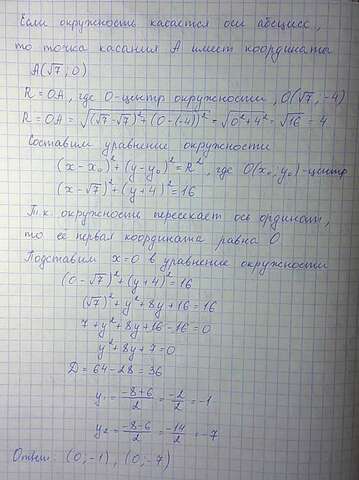 Если окружность касается оси абсцисс,
то точка касания А имеет координаты
A(√7; 0)
R = OA, где O-центр окружности, O(√7, -4)
R = OA = √((√7-√7)²+(0-(-4))²) = √(0²+4²) = √16 = 4
Составим уравнение окружности
(x-x₀)²+(y-y₀)²=R², где O(x₀, y₀)-центр
(x-√7)²+(y+4)²=16
Т.к. окружность пересекает ось ординат,
то её первая координата равна 0
Подставим x=0 в уравнение окружности
(0-√7)²+(y+4)²=16
(√7)²+y²+8y+16=16
7+y²+8y+16-16=0
y²+8y+7=0
D = 64-28 = 36
y₁ = (-8+6)/2 = -2/2 = -1
y₂ = (-8-6)/2 = -14/2 = -7
Ответ: (0; -1), (0; -7)